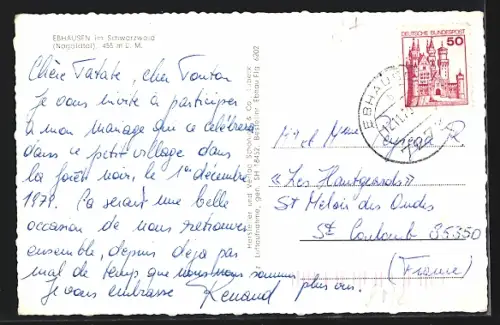 EBHAUSEN im Schwarzwald
(Nagoldtal), 455 m ü. M.
Chère Tatate, cher Tonton
Je vous invite à participer
à mon mariage qui ce célèbrera
dans ce petit village dans
la forêt noire, le 1er décembre
1979. Ça serait une belle
occasion de nous retrouver
ensemble, depuis déjà pas
mal de temps que nous nous sommes plus vus.
Je vous embrasse Renaud
Hersteller und Verlag Schöning & Co., Lübeck
Luftaufnahme, gen. SH 184/52, Besteller Ebhau F(l) 6202
DEUTSCHE BUNDESPOST
50
EBHAUSEN
7275
Mr et Mme R.
«Les Hautgersods»
St Méloir des Ondes
St Coulomb 35350
(France)